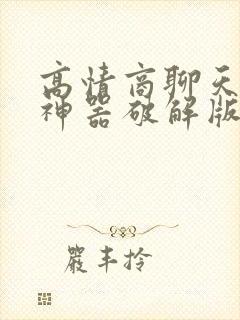 高情商聊天
神器破解版
严丰拎